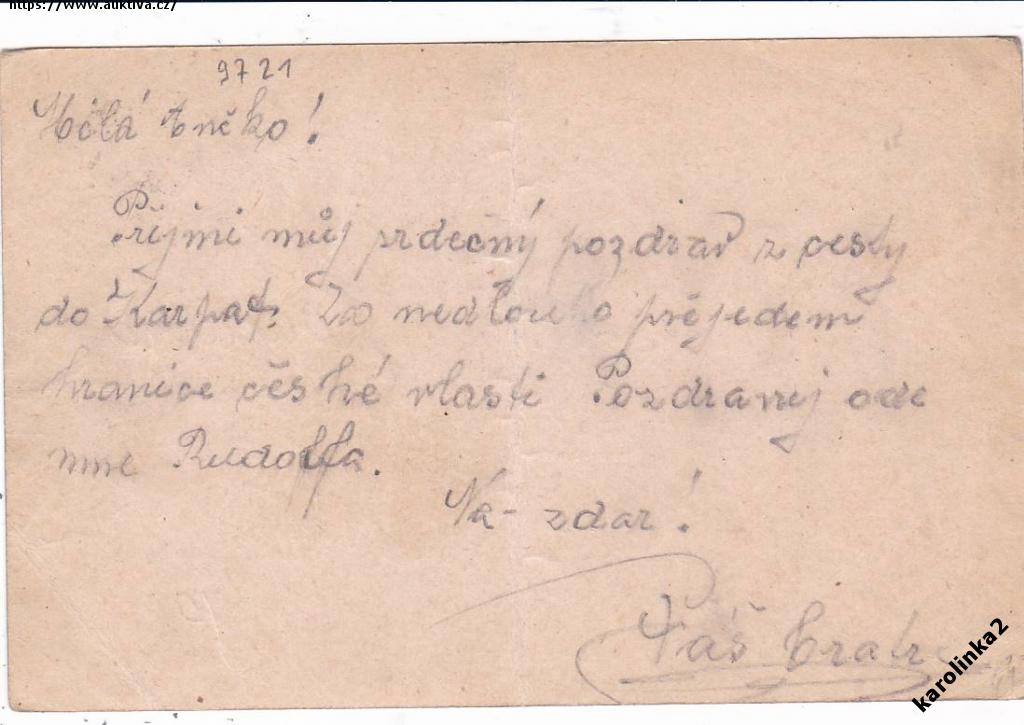 https://www.auktiva.cz/
9721
Milá Aničko!
Přijmi můj srdečný pozdrav z cesty
do Karpat. Za nedlouho přejedem
hranice české vlasti Pozdravuj ode
mne Rudolfa.
Na-zdar!
Váš
karolinka2